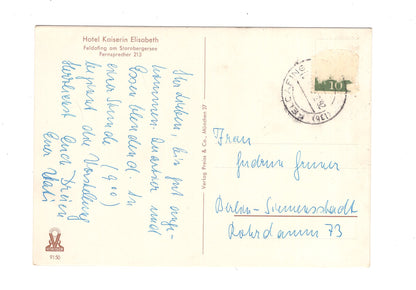 Hotel Kaiserin Elisabeth
Feldafing am Starnbergersee
Fernsprecher 213
Ihr Lieben, bin gut ange-
kommen. Quartier und
Essen blendend. In
einer Stunde (9°°)
beginnt die Vorstellung
Herzlichst Euch Dreien
Euer Vati
9150
Verlag Preiss & Co., München 27
FELDAFING
(13b)
10
Frau
Gudrun
Berlin-Siemensstadt
Rohrdamm 73